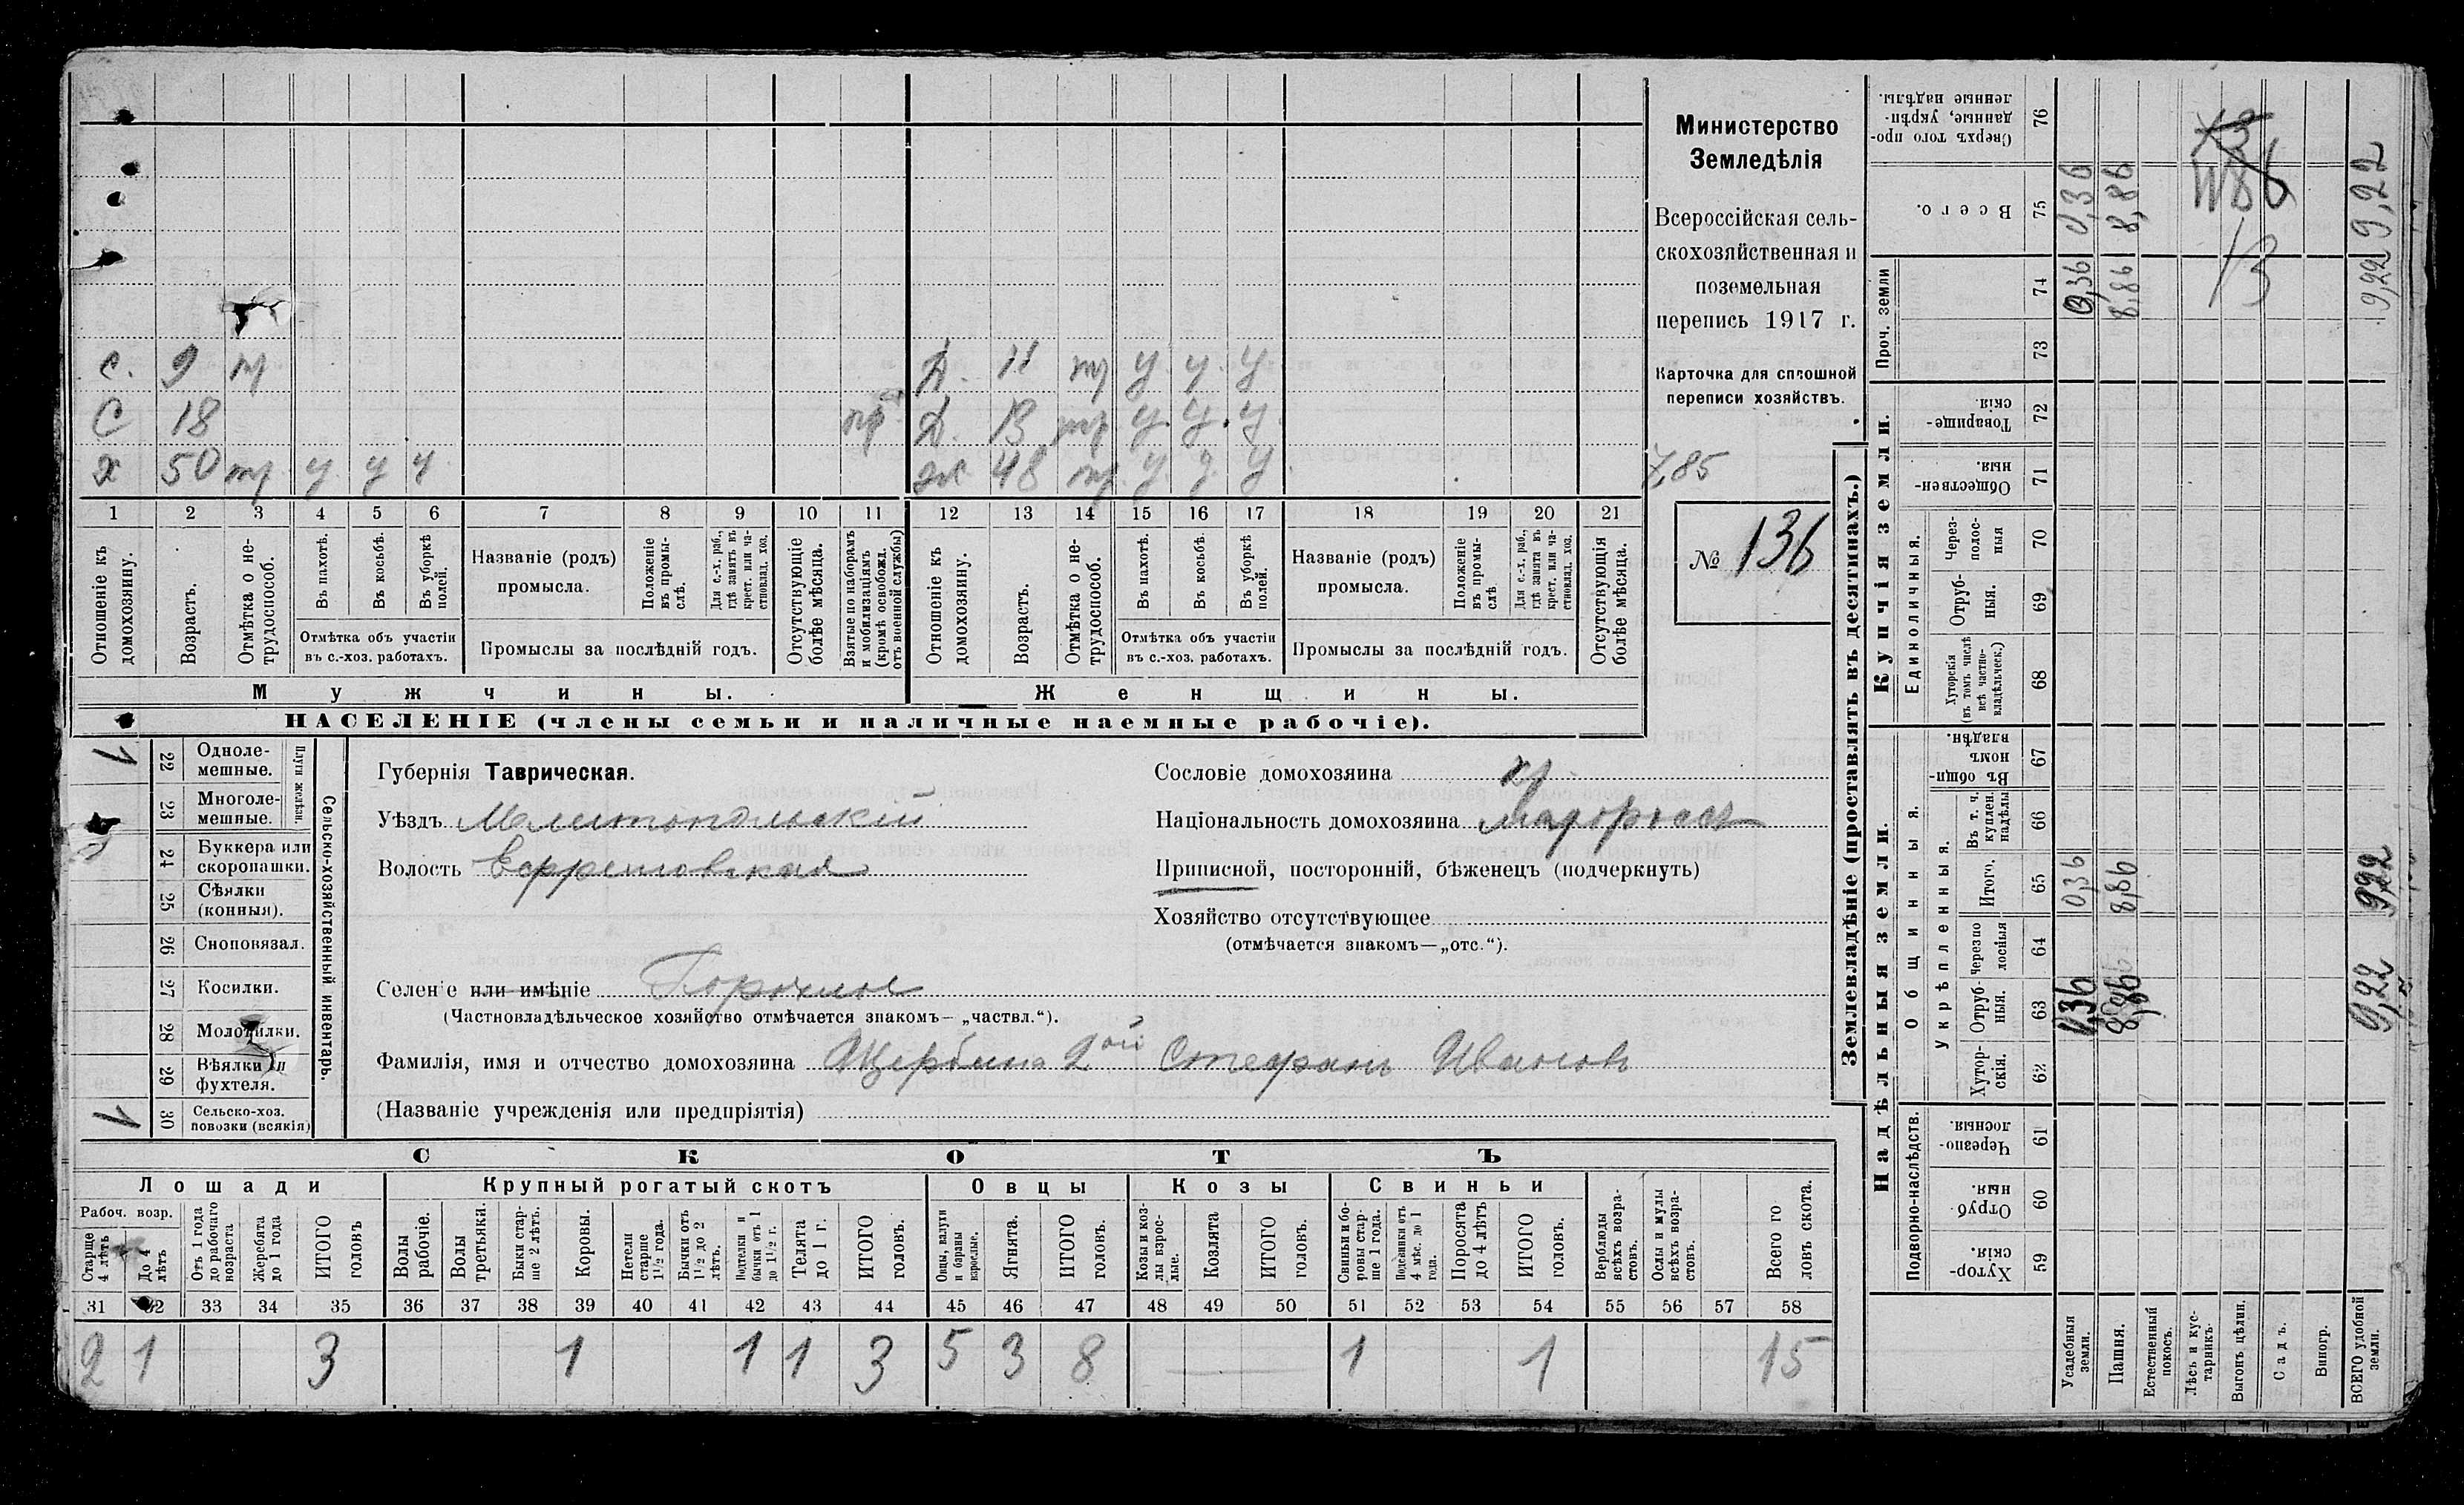 с. 9 тр Д. 11 тр у у у
С 18 пр Д. 13 тр у у у
х 50 тр у у у ж 48 тр у у у
1 2 3 4 5 6 7 8 9 10 11 12 13 14 15 16 17 18 19 20 21
Отношеніе къ домохозяину.
Возрастъ.
Отмѣтка о не-трудоспособ.
Въ пахотѣ.
Въ косьбѣ.
Въ уборкѣ полей.
Отмѣтка объ участіи
въ с.-хоз. работахъ.
Названіе (родъ)
промысла.
Положеніе въ промы-слѣ.
Для с.-х. раб., гдѣ занятъ въ крест. или ча-стновлад. хоз.
Промыслы за послѣдній годъ.
Отсутствующіе болѣе мѣсяца.
Взятые по наборамъ и мобилизаціямъ (кромѣ освобожд. отъ военной службы)
Отношеніе къ домохозяину.
Возрастъ.
Отмѣтка о не-трудоспособ.
Въ пахотѣ.
Въ косьбѣ.
Въ уборкѣ полей.
Отмѣтка объ участіи
въ с.-хоз. работахъ.
Названіе (родъ)
промысла.
Положеніе въ промы-слѣ
Для с.-х. раб., гдѣ занятъ въ крест. или ча-стновлад. хоз.
Промыслы за послѣдній годъ.
Отсутствующія болѣе мѣсяца.
Мужчины. Женщины.
НАСЕЛЕНІЕ (члены семьи и наличные наемные рабочіе).
Министерство
Земледѣлія
Всероссійская сель-
скохозяйственная и
поземельная
перепись 1917 г.
Карточка для сплошной
переписи хозяйствъ.
7,85
№ 136
Сельско-хозяйственный инвентарь.
Плуги желѣзн.
1 22 Одноле-мешные.
23 Многоле-мешные.
24 Буккера или скоропашки.
25 Сѣялки (конныя).
26 Сноповязал.
27 Косилки.
28 Молотилки.
29 Вѣялки и фухтеля.
1 30 Сельско-хоз. повозки (всякія)
Губернія Таврическая.
Уѣздъ Мелитопольскій
Волость Ефремовская
Селеніе или имѣніе Горѣлое
(Частновладѣльческое хозяйство отмѣчается знакомъ— „частвл.“).
Фамилія, имя и отчество домохозяина Щербина 2ой Стефанъ Ивановъ
(Названіе учрежденія или предпріятія)
Сословіе домохозяина кр.
Національность домохозяина малороссъ
Приписной, посторонній, бѣженецъ (подчеркнуть)
Хозяйство отсутствующее
(отмѣчается знакомъ—„отс.“).
СКОТЪ
Лошади Крупный рогатый скотъ Овцы Козы Свиньи
Рабоч. возр.
Старше 4 лѣтъ
До 4 лѣтъ
Отъ 1 года до рабочаго возраста
Жеребята до 1 года.
ИТОГО головъ
Волы рабочіе.
Волы третьяки.
Быки стар-ше 2 лѣтъ.
Коровы.
Нетели старше 1½ года.
Бычки отъ 1½ до 2 лѣтъ.
Подтелки и бычки отъ 1 до 1½ г.
Телята до 1 г.
ИТОГО головъ.
Овцы, валухи и бараны взрослые.
Ягнята.
ИТОГО головъ.
Козы и коз-лы взрос-лые.
Козлята
ИТОГО головъ.
Свиньи и бо-ровы стар-ше 1 года.
Подсвинки отъ 4 мѣс. до 1 года.
Поросята до 4 лѣтъ
ИТОГО головъ.
Верблюды всѣхъ возра-стовъ.
Ослы и мулы всѣхъ возра-стовъ.
Всего го ловъ скота.
31 32 33 34 35 36 37 38 39 40 41 42 43 44 45 46 47 48 49 50 51 52 53 54 55 56 57 58
2 1 3 1 1 1 3 5 3 8 — 1 1 15
Землевладѣніе (проставлять въ десятинахъ.)
Надѣльныя земли. Купчія земли.
Подворно-наслѣдств.
Общинныя.
Укрѣпленныя.
Единоличныя.
Проч. земли
Сверхъ того про-данные, укрѣп-ленные надѣлы. 76
Всего. 75 0,36 8,86 9,22
74 0,36 8,86 9,22
73
Товарище-скія. 72
Обществен-ныя. 71
Через-полос-ныя 70
Отруб-ныя. 69
Хуторскія (въ томъ числѣ всѣ частно-владѣльческ.) 68
Въ общин-номъ владѣн. 67
Въ т. ч. куплен. надѣлы 66
Итого. 65 0,36 8,86 9,22
Черезпо лосныя 64
Отруб-ныя. 63 0,36 8,86 9,22
Хутор-скія. 62
Черезпо-лосныя. 61
Отруб ныя. 60
Хутор-скія. 59
Усадебныя земли.
Пашня.
Естественный покосъ.
Лѣсъ и кус-тарникъ
Выгонъ цѣлин.
Садъ.
Виногр.
ВСЕГО удобной земли.
13